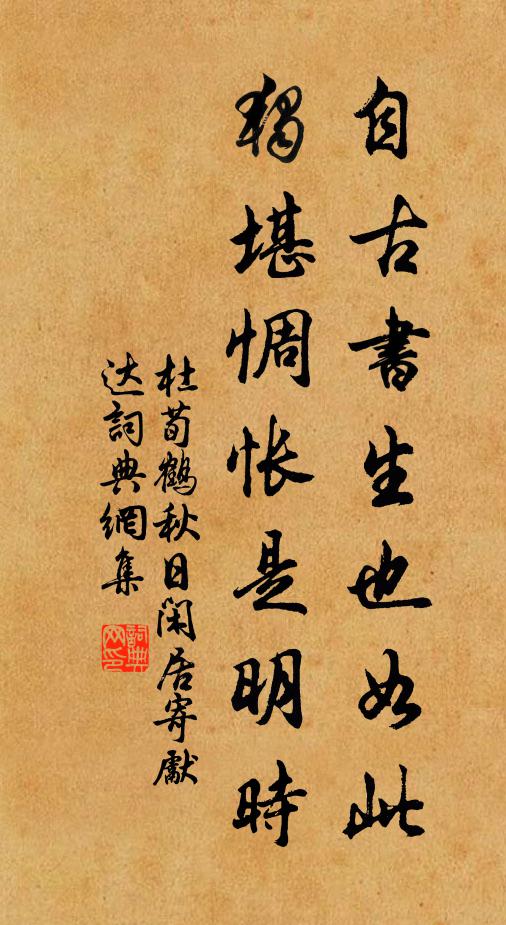 自古書生也如此
獨堪惆悵是明時
杜荀鶴秋日閑居寄獻
达詞典網集
詞典
网印